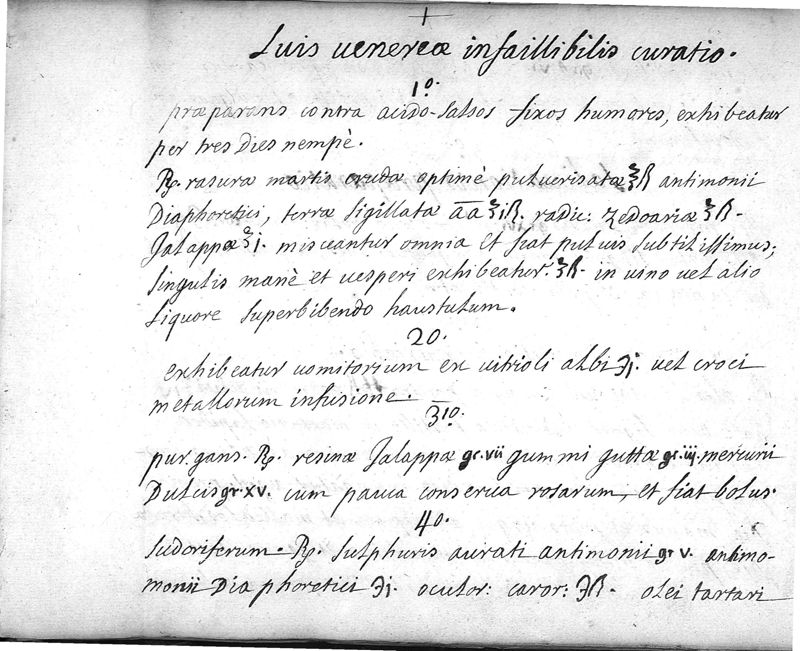 +
Luis venereæ infaillibilis curatio.
1o.
præparans contra acido-salsos fixos humores, exhibeatur
per tres Dies nempè.
℞. rasuræ martis crudæ optimè pulverisatæ ℥ß antimonii
Diaphoretici, terræ sigillatæ āā ʒiß. radic: zedoariæ ʒß.
Jalappæ ʒj. misceantur omnia et fiat pulvis subtilissimus;
singulis manè et vesperi exhibeatur. ʒß. in vino vel alio
liquore superbibendo haustulum.
2o.
exhibeatur vomitorium ex vitrioli albi ℈j. vel croci
metallorum infusione.
3io.
purgans. ℞. resinæ Jalappæ gr. vii gummi guttæ gr. iij. mercurii
Dulcis gr. xv. cum pauca conserva rosarum, et fiat bolus.
4o.
sudoriferum. ℞. sulphuris aurati antimonii gr v. antimo-
monii Diaphoretici ℈j. oculor: caror: ℈ß. olei tartari